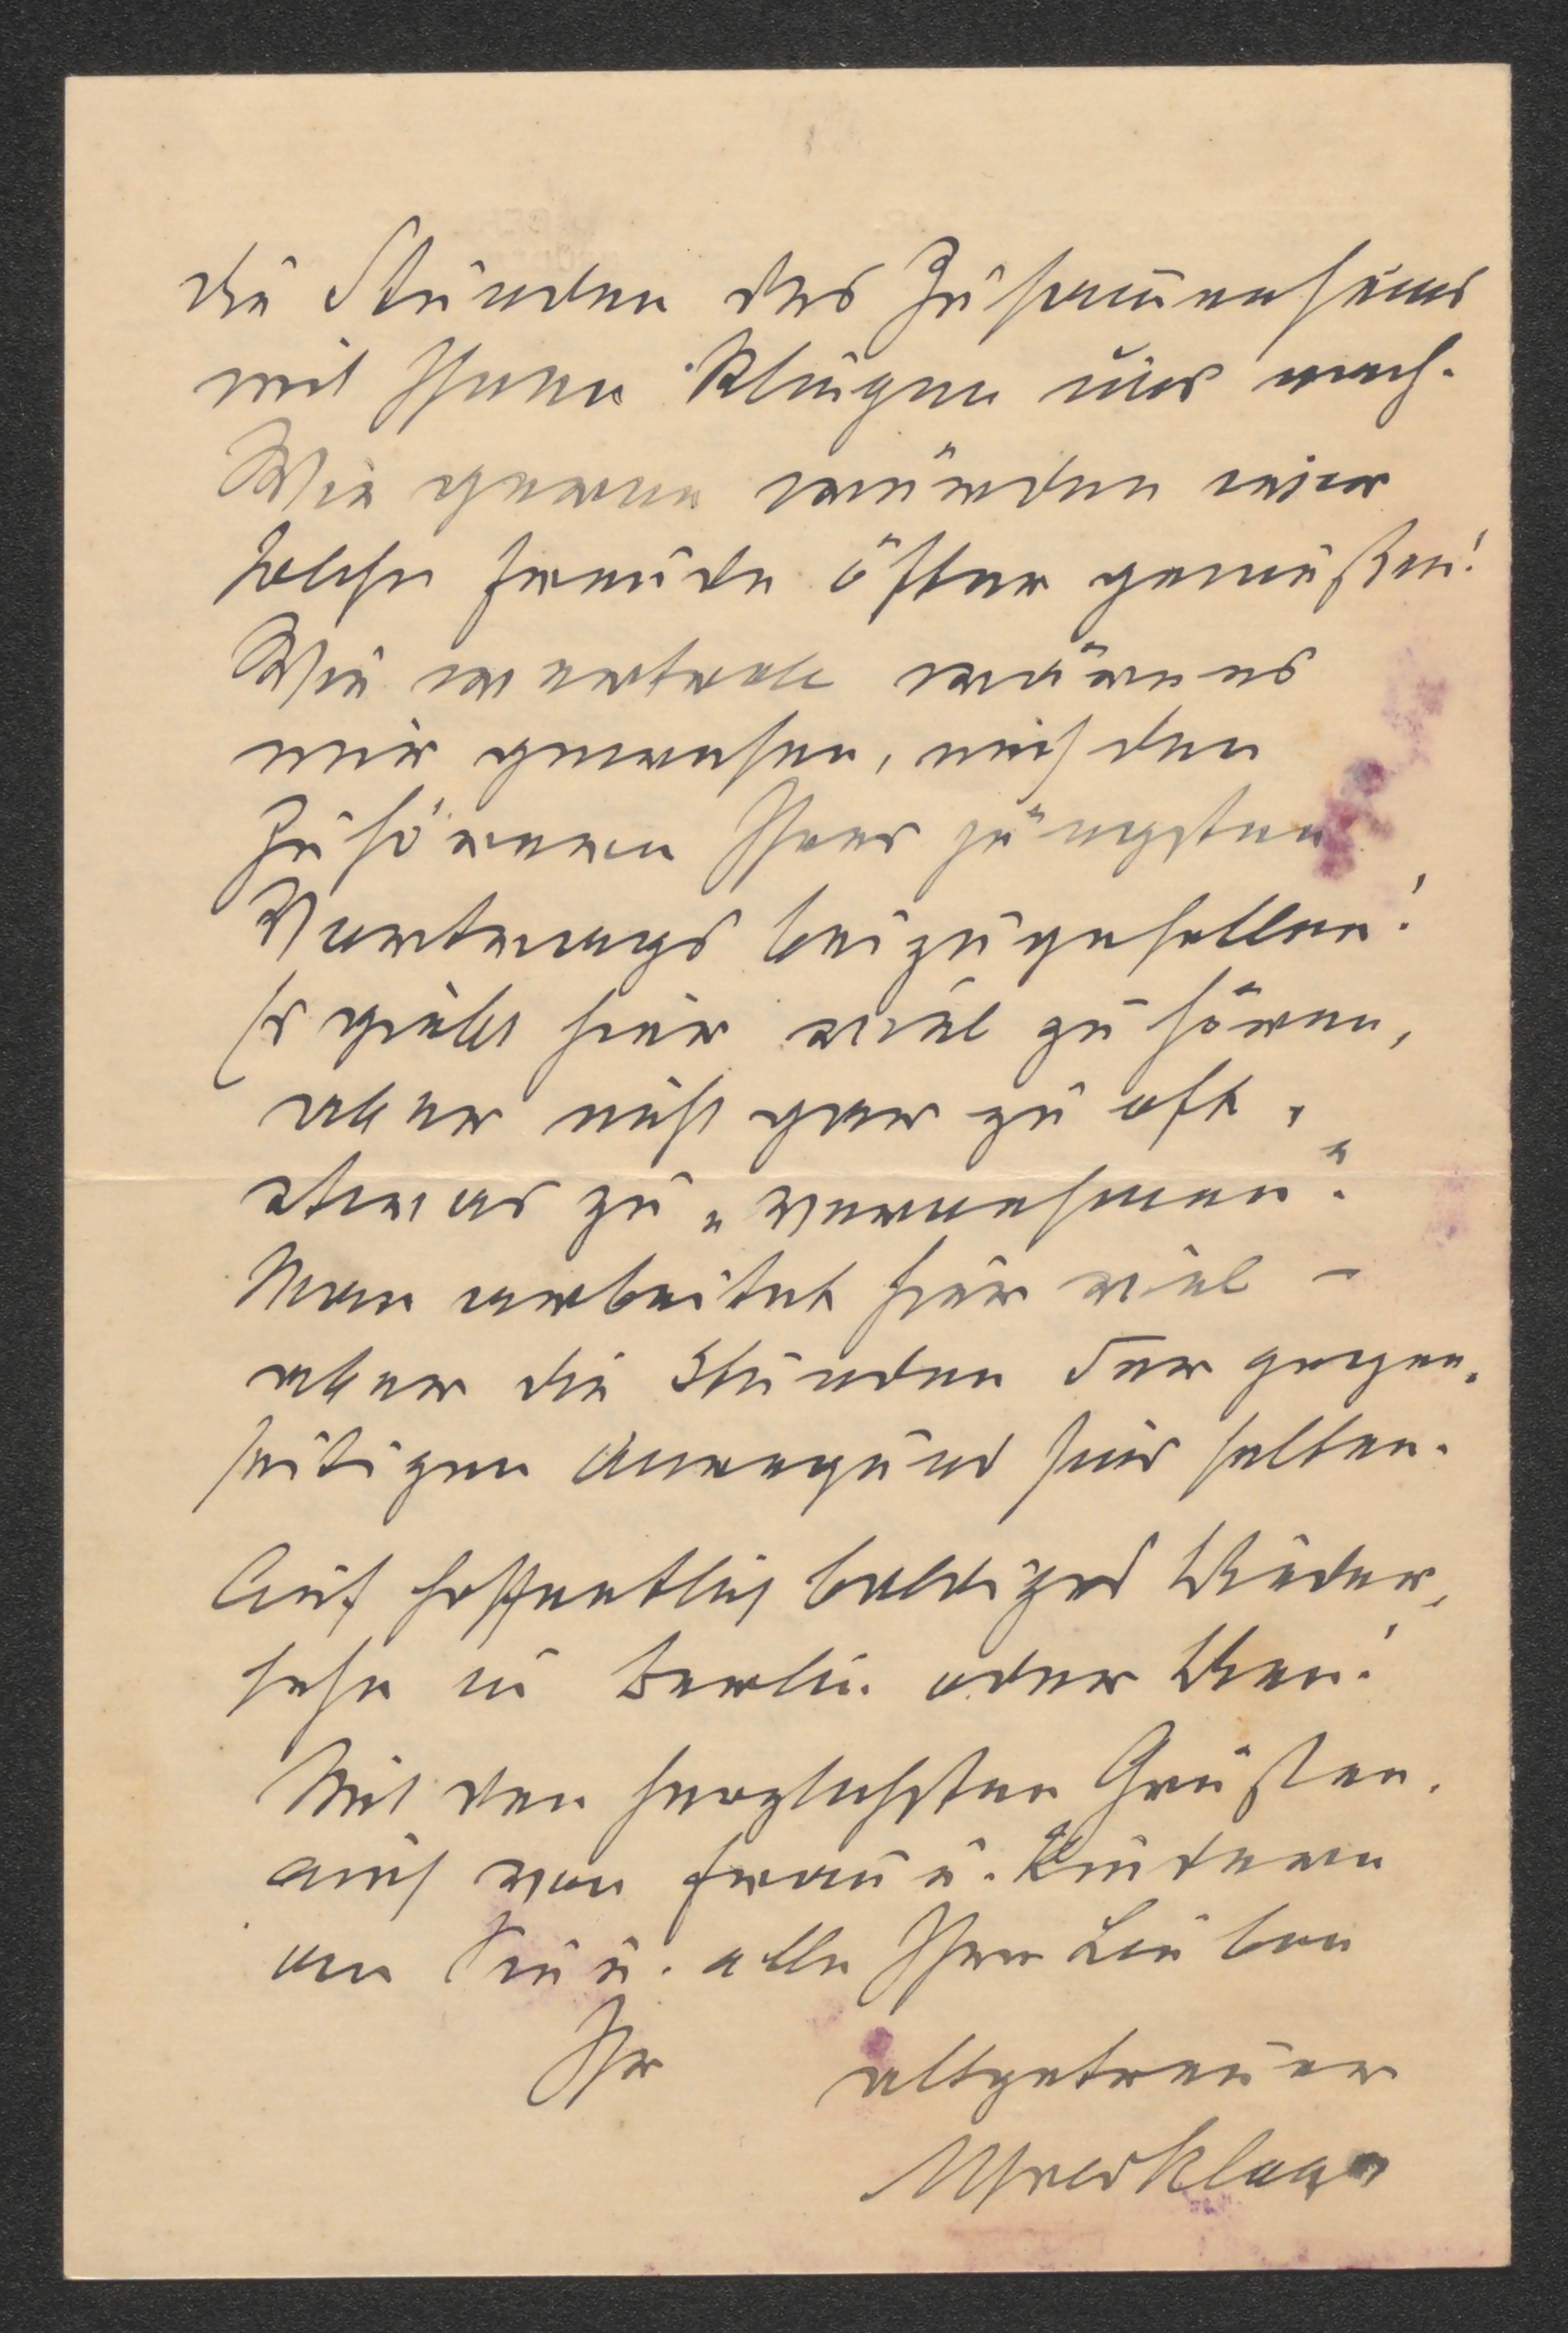 die Stunden des Zusammenseins
mit Ihnen klingen uns nach.
Wie gerne würden wir
solche Freude öfter genießen!
Wie wertvoll wäre es
mir gewesen, mich den
Zuhörern Ihres jüngsten
Vortrags beizugesellen!
Es giebt hier viel zu hören,
aber nicht gar zu oft,
etwas zu „vernehmen“.
Man arbeitet hier viel –
aber die Stunden der gegen-
seitigen Anregung sind selten.
Auf hoffentlich baldiges Wieder-
sehn in Berlin oder Wien!
Mit den herzlichsten Grüßen,
auch von Frau u. Kindern
an Sie u. alle Ihre Lieben
Ihr altgetreuer
Alfred Klaar